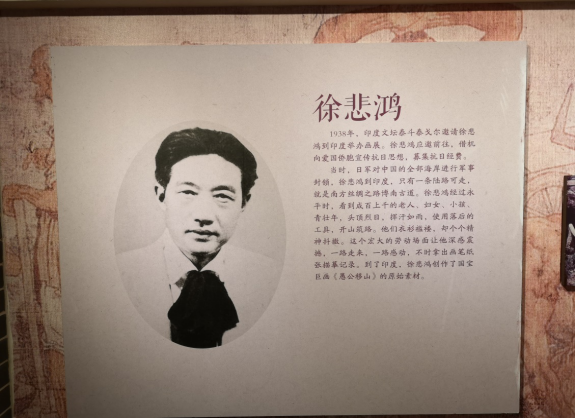 徐悲鸿
1938年，印度文坛泰斗泰戈尔邀请徐悲
鸿到印度举办画展。徐悲鸿应邀前往，借机
向爱国侨胞宣传抗日思想，募集抗日经费。
当时，日军对中国的全部海岸进行军事
封锁。徐悲鸿到印度，只有一条陆路可走，
就是南方丝绸之路博南古道。徐悲鸿经过永
平时，看到成百上千的老人、妇女、小孩、
青壮年，头顶烈日，挥汗如雨，使用落后的
工具，开山筑路。他们衣衫褴楼，却个个精
神抖擞。这个宏大的劳动场面让他深感震
撼，一路走来，一路感动，不时拿出画笔纸
张描摹记录，到了印度，徐悲鸿创作了国宝
巨画《愚公移山》的原始素材。